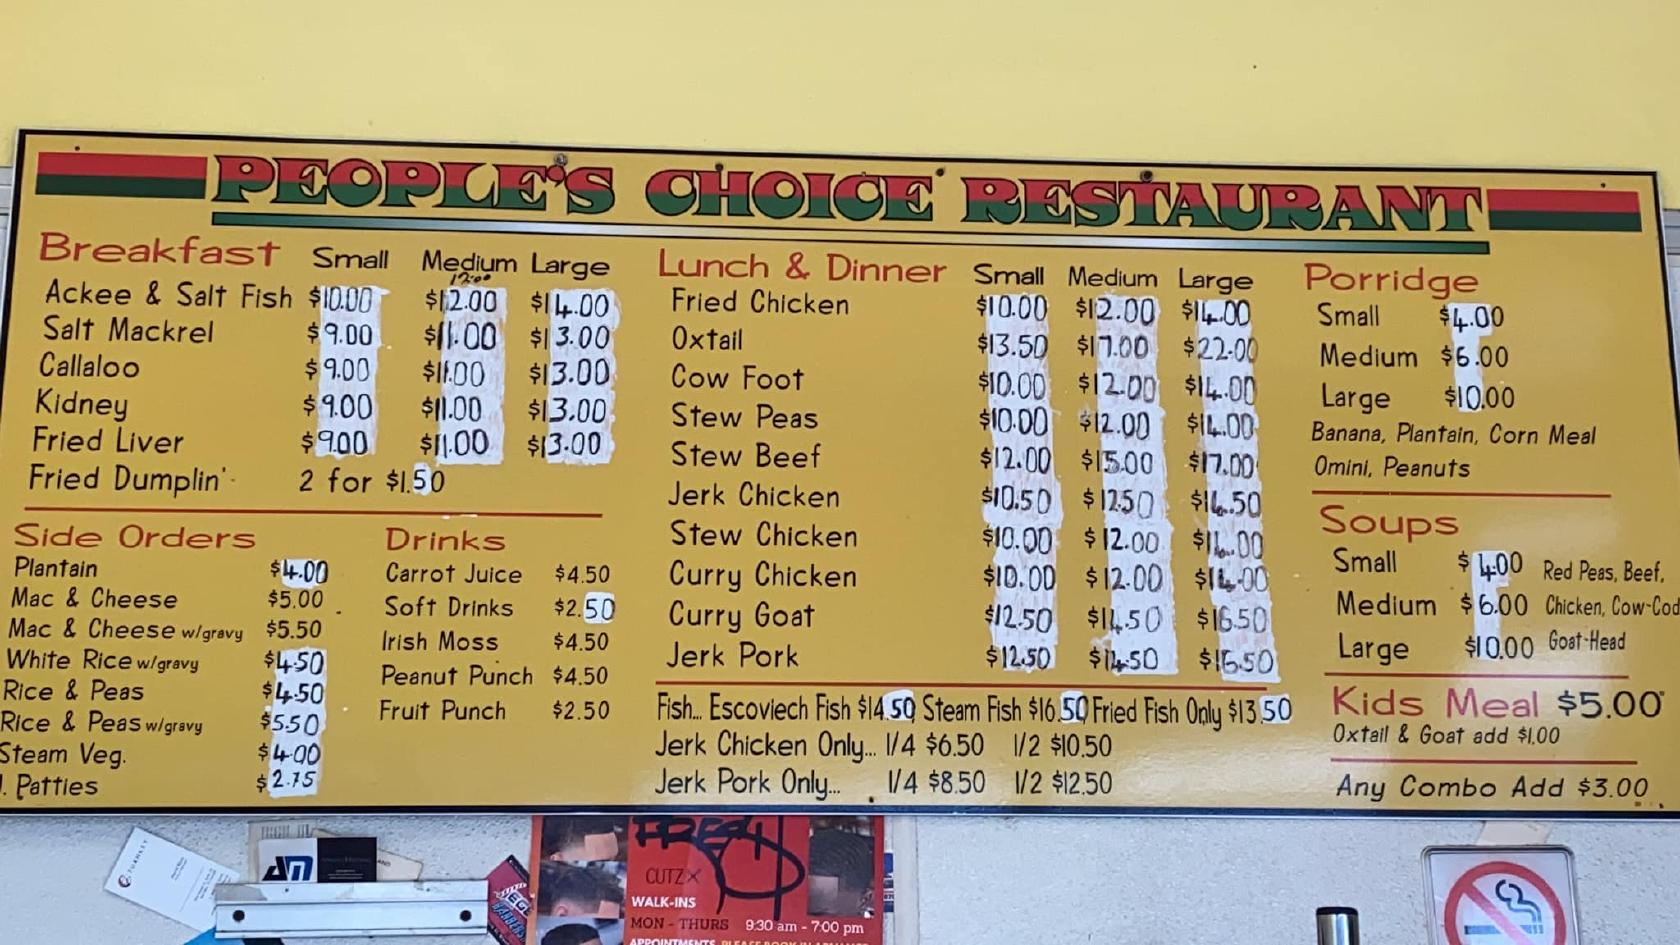 PEOPLE'S CHOICE RESTAURANT
Breakfast Small Medium Large
12.00
Ackee & Salt Fish $10.00 $12.00 $14.00
Salt Mackrel $9.00 $11.00 $13.00
Callaloo $9.00 $11.00 $13.00
Kidney $9.00 $11.00 $13.00
Fried Liver $9.00 $11.00 $13.00
Fried Dumplin' 2 for $1.50
Side Orders
Plantain $4.00
Mac & Cheese $5.00
Mac & Cheese w/gravy $5.50
White Rice w/gravy $4.50
Rice & Peas $4.50
Rice & Peas w/gravy $5.50
Steam Veg. $4.00
Patties $2.75
Drinks
Carrot Juice $4.50
Soft Drinks $2.50
Irish Moss $4.50
Peanut Punch $4.50
Fruit Punch $2.50
Lunch & Dinner Small Medium Large
Fried Chicken $10.00 $12.00 $14.00
Oxtail $13.50 $17.00 $22.00
Cow Foot $10.00 $12.00 $14.00
Stew Peas $10.00 $12.00 $14.00
Stew Beef $12.00 $15.00 $17.00
Jerk Chicken $10.50 $12.50 $14.50
Stew Chicken $10.00 $12.00 $14.00
Curry Chicken $10.00 $12.00 $14.00
Curry Goat $12.50 $14.50 $16.50
Jerk Pork $12.50 $14.50 $16.50
Fish... Escoviech Fish $14.50 Steam Fish $16.50 Fried Fish Only $13.50
Jerk Chicken Only... 1/4 $6.50 1/2 $10.50
Jerk Pork Only... 1/4 $8.50 1/2 $12.50
Porridge
Small $4.00
Medium $6.00
Large $10.00
Banana, Plantain, Corn Meal
Omini, Peanuts
Soups
Small $4.00 Red Peas, Beef,
Medium $6.00 Chicken, Cow-Cod
Large $10.00 Goat-Head
Kids Meal $5.00
Oxtail & Goat add $1.00
Any Combo Add $3.00
CUTZ
WALK-INS
MON - THURS 9:30 am - 7:00 pm
APPOINTMENTS